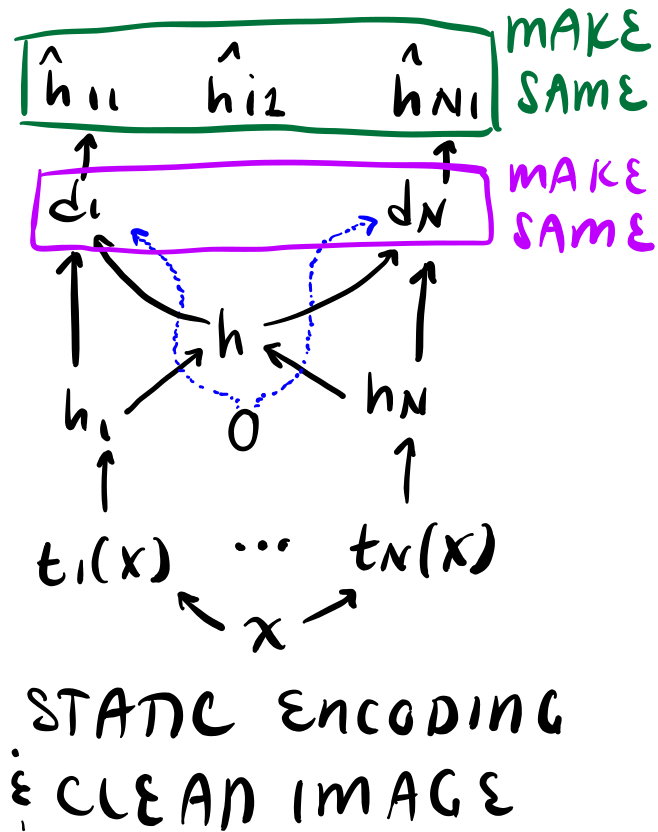 ĥ11 ĥi1 ĥN1
MAKE SAME
d1 dN
MAKE SAME
h
h1 hN
0
t1(x) ... tN(x)
x
STATIC ENCODING
& CLEAN IMAGE